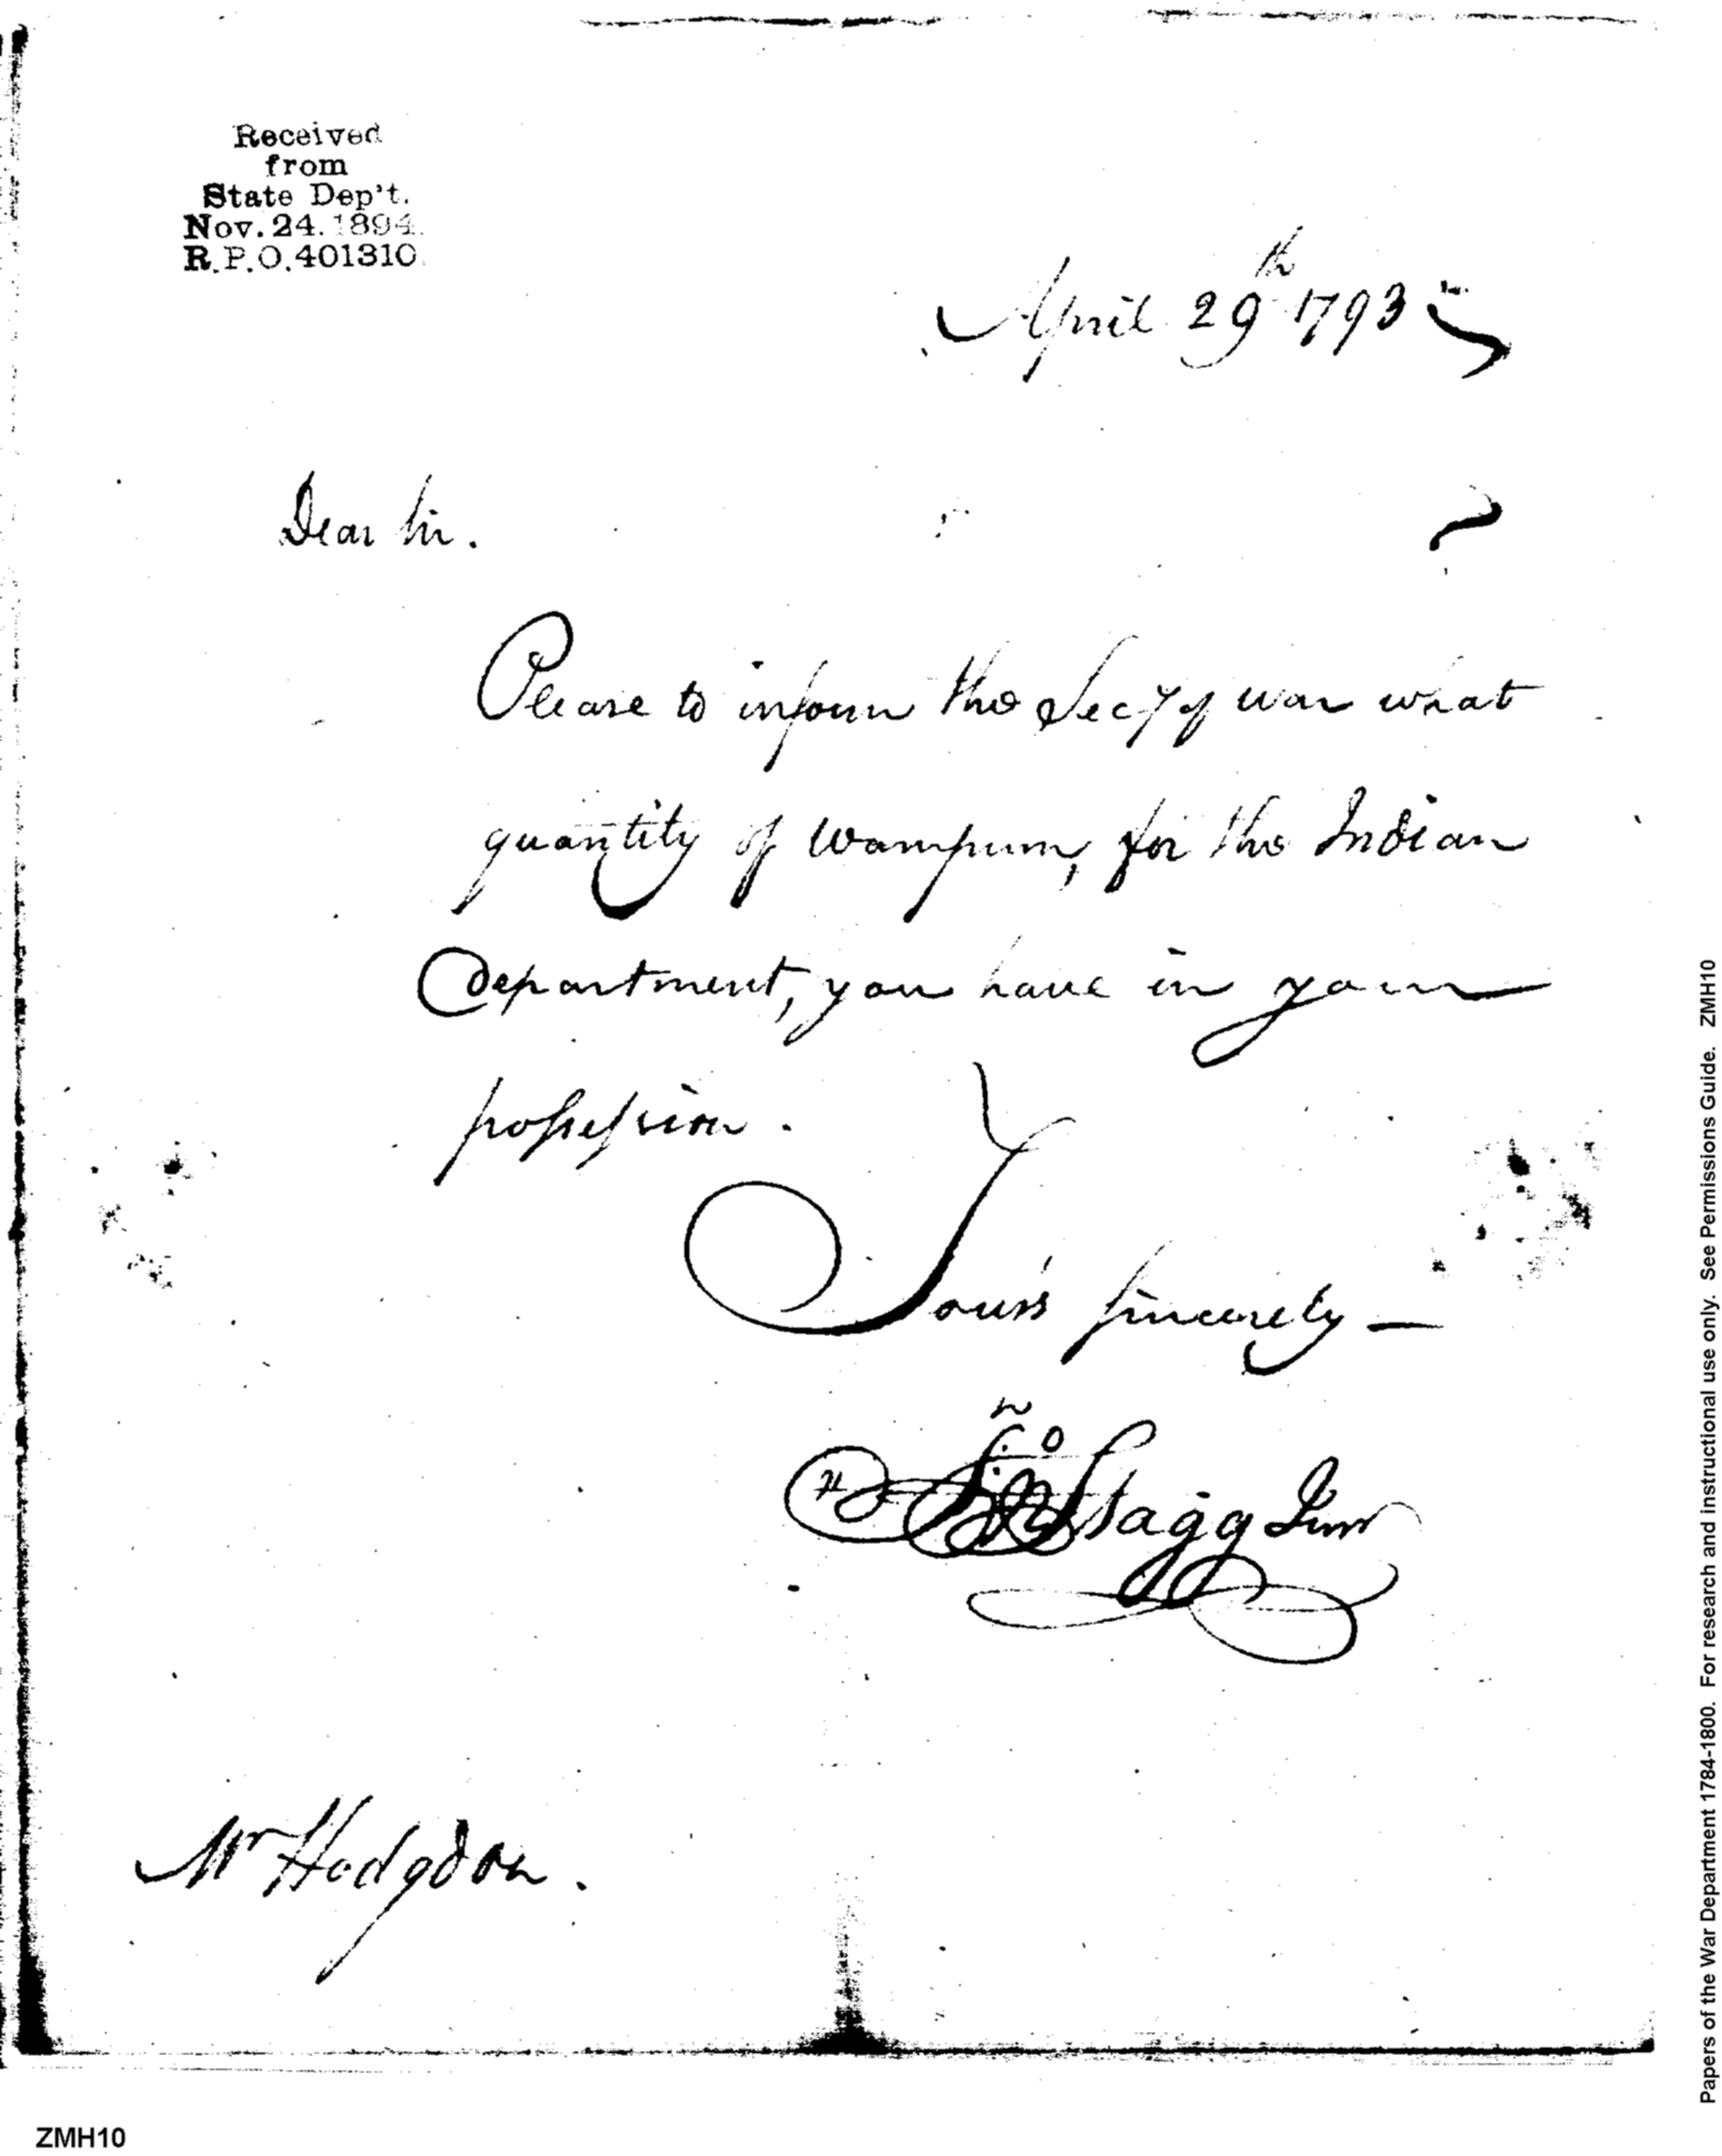 Received
from
State Dep't.
Nov. 24. 1894.
R.P.O. 401310.
April 29th 1793
Dear Sir.
Please to inform the Secy of war what
quantity of wampum, for the Indian
Department, you have in your
possession.
Yours sincerely —
Jno Stagg Junr
Mr Hodgdon.
ZMH10
Papers of the War Department 1784-1800. For research and instructional use only. See Permissions Guide. ZMH10